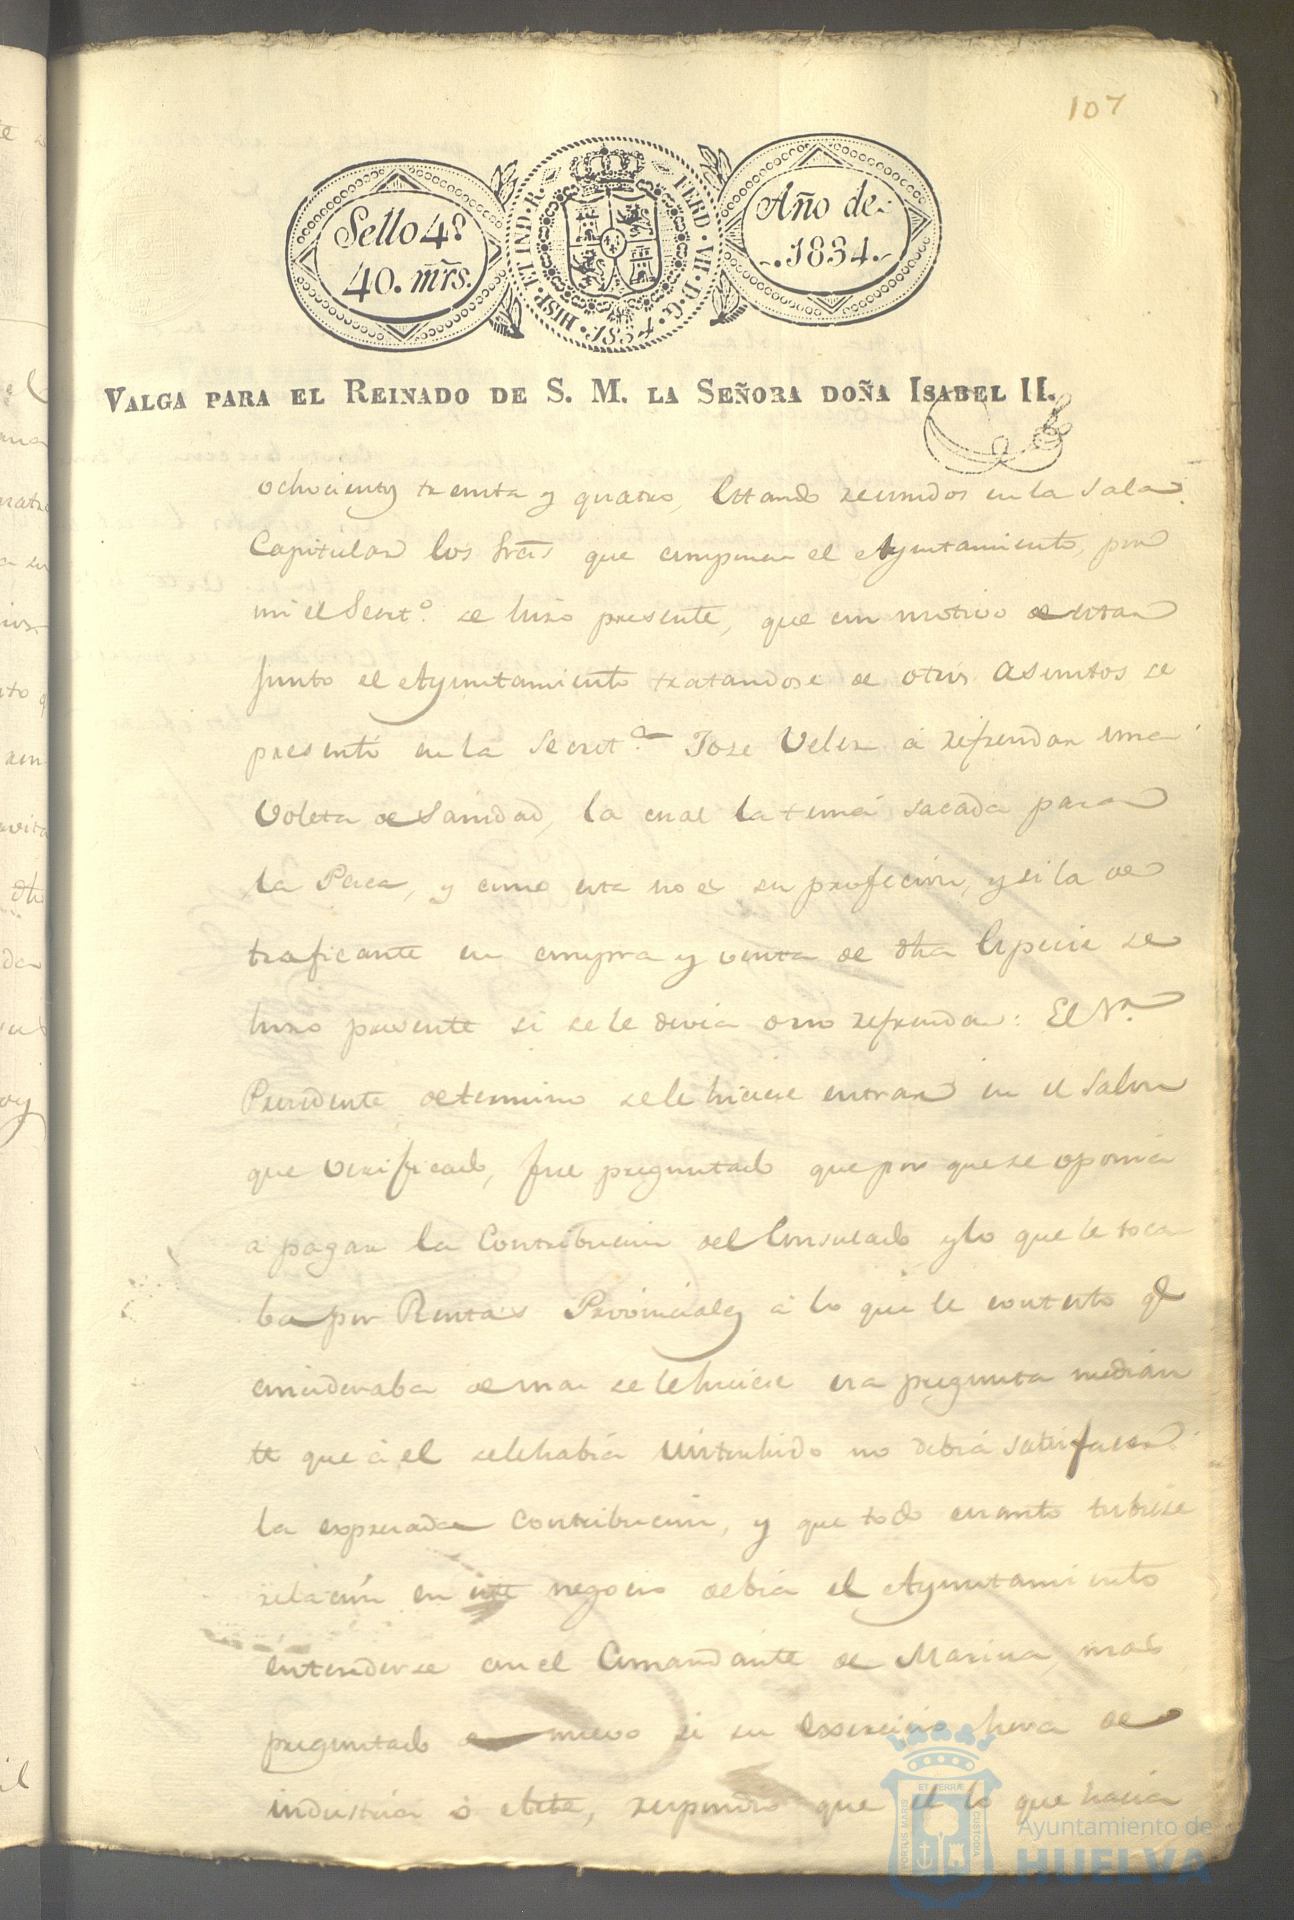 107
Sello 4º
40. mrs.
HISP. ET IND. R. FERD. VII. D. G. 1834.
Año de
1834.
VALGA PARA EL REINADO DE S. M. LA SEÑORA DOÑA ISABEL II.
ochocientos treinta y quatro, Estando reunidos en la Sala
Capitular los Sres que componen el Ayuntamiento, por
mi el Secretº. se hizo presente, que con motivo de estar
junto el Ayuntamiento tratandose de otros asuntos se
presentó en la Secretª Jose Velez a refrendar una
Voleta de Sanidad, la cual la tenia sacada para
la Pesca, y como esta no es su profecion, y si la de
traficante en compra y venta de dha Especie se
hizo presente si se le devia o no refrendar: El Sr.
Presidente determino se le hiciese entrar en el Salon
que verificado, fue preguntado que por que se oponia
a pagar la Contribucion del Consulado y lo que le toca
ba por Rentas Provinciales a lo que le contesto q
consideraba de mas se le hiciese esa pregunta median
te que á el se le habia instruhido no debia satisfacer
la expresada Contribucion, y que todo cuanto tubiese
relacion en este negocio debia el Ayuntamiento
entenderse con el Comandante de Marina, mas
preguntado de nuevo si su exsercicio hera de
industria o este, respondio que el lo que hacia
PORTUS MARIS ET TERRÆ CUSTODIA
Ayuntamiento de
HUELVA